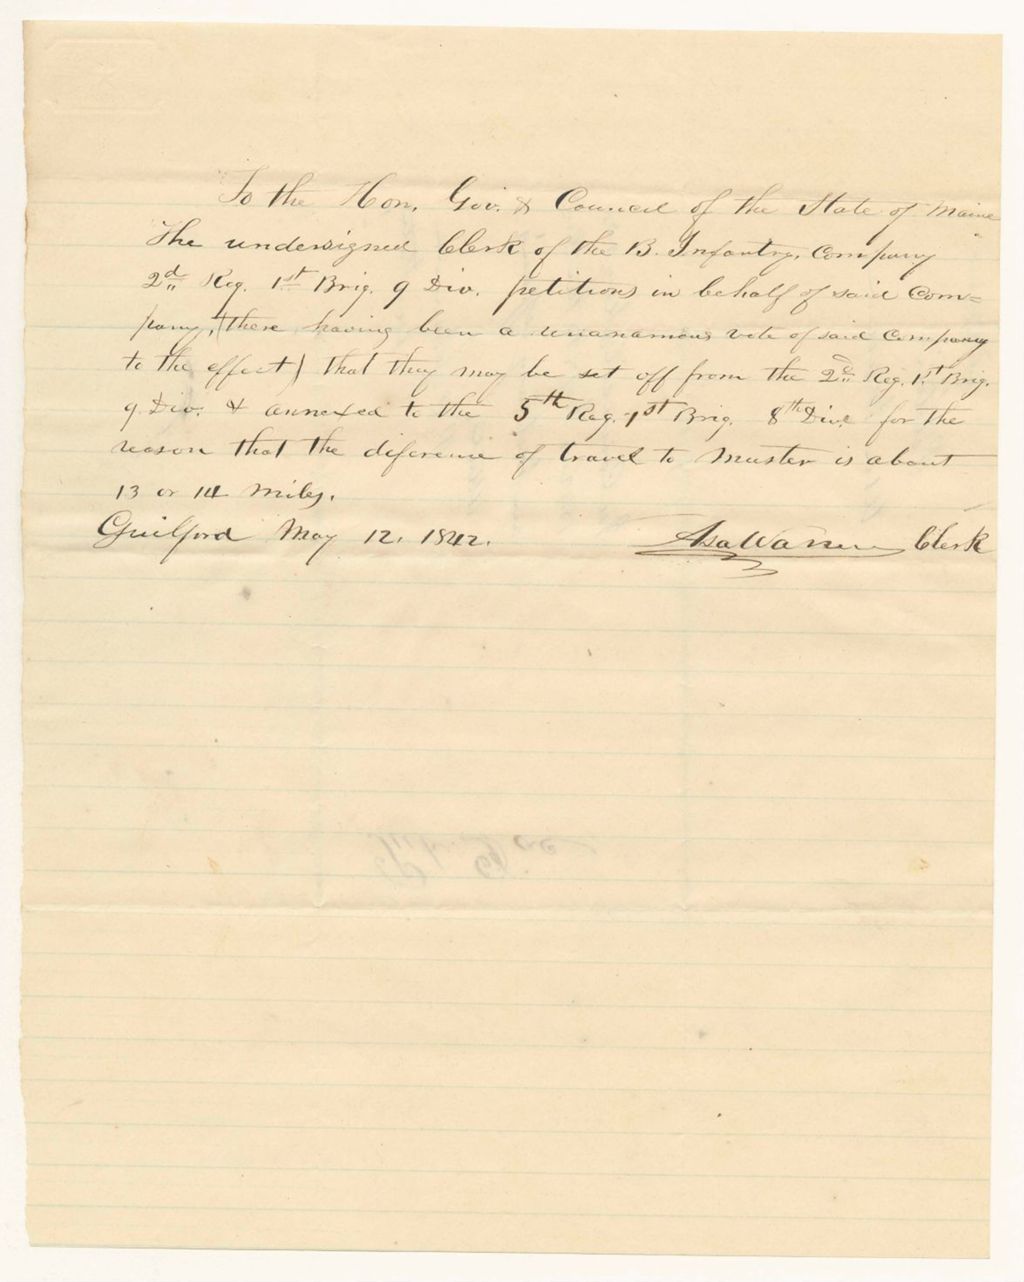 To the Hon. Gov. & Council of the State of Maine
The undersigned Clerk of the B. Infantry, Company
2d Reg. 1st Brig. 9 Div. petitions in behalf of said Com=
pany, (there having been a unanamous vote of said Company
to the effect) that they may be set off from the 2d Reg. 1st Brig.
9. Div. & annexed to the 5th Reg. 1st Brig. 8th Div. for the
reason that the diference of travel to Muster is about
13 or 14 miles.
Guilford May 12. 1842.
Asa Warren Clerk